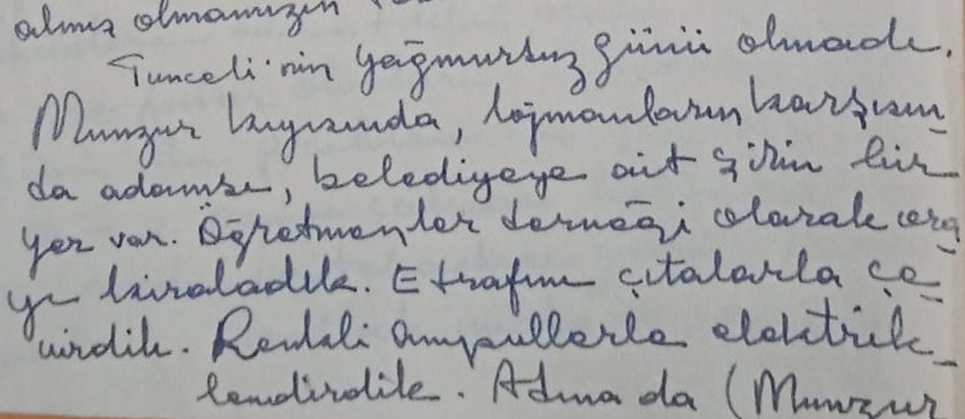 almış olmamızın
Tunceli'nin yağmursuz günü olmadı.
Munzur kıyısında, lojmanların karşısın-
da adamsı, belediyeye ait şirin bir
yer var. Öğretmenler derneği olarak ora-
yı kiraladık. Etrafını çıtalarla çe-
virdik. Renkli ampullerle elektrik-
lendirdik. Adına da (Munzur